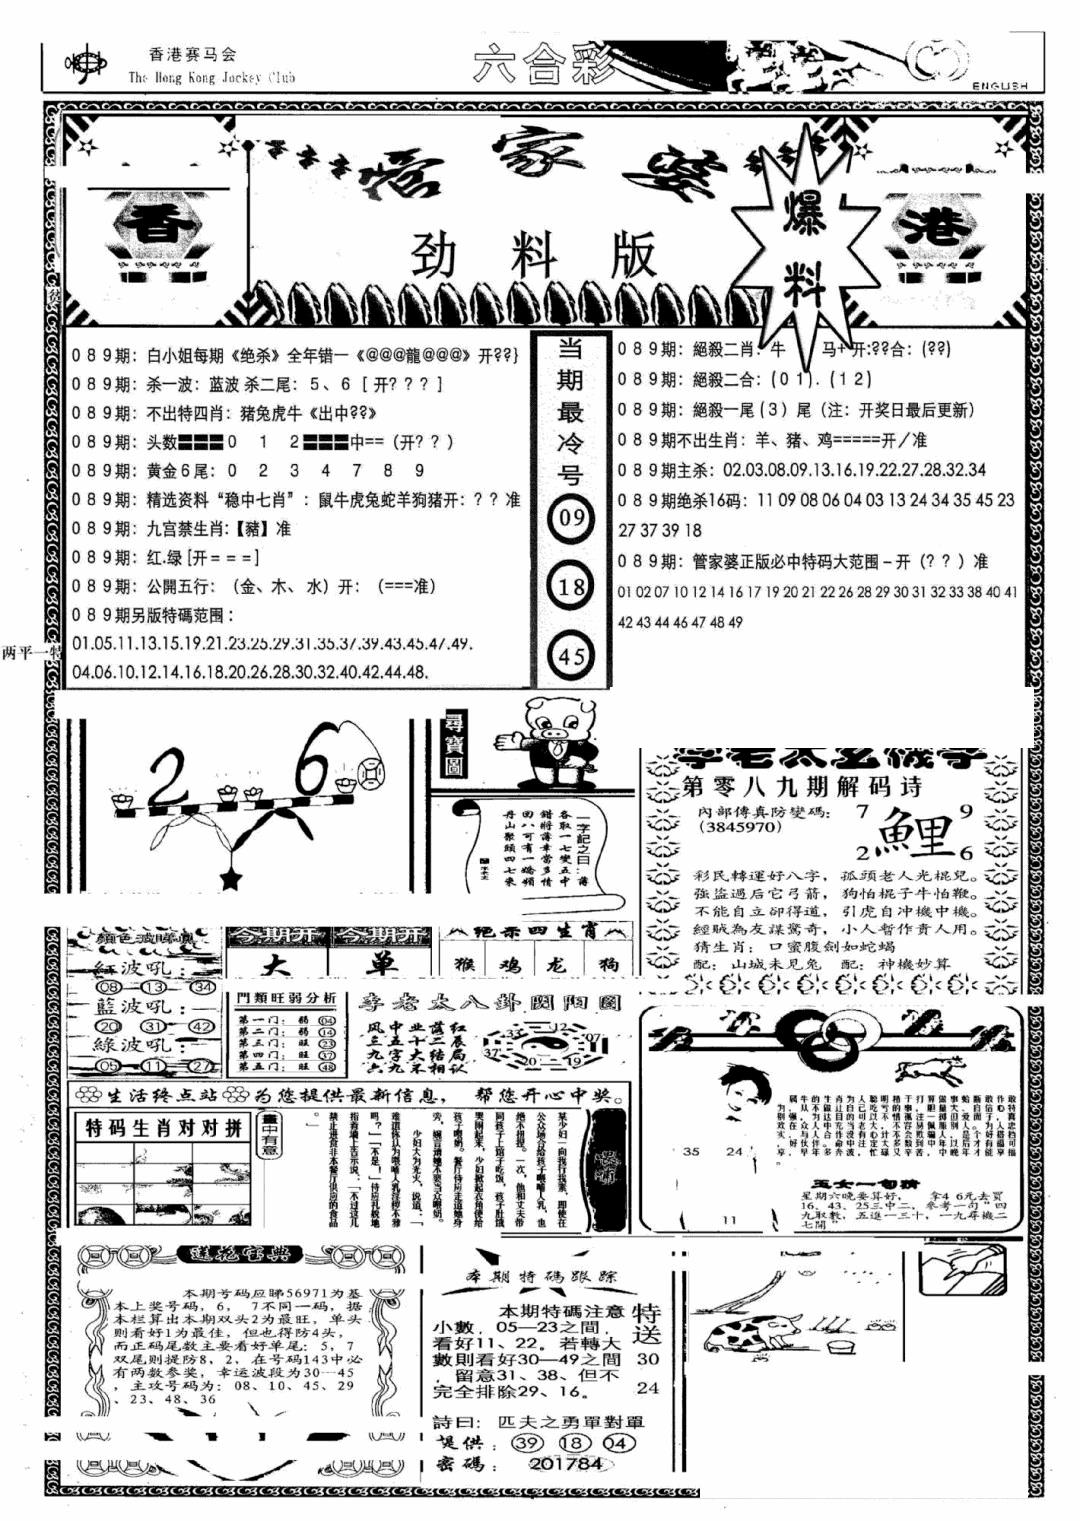 香港赛马会
The Hong Kong Jockey Club
六合彩
ENGLISH
管家婆
劲料版
香
港
爆料
089期：白小姐每期《绝杀》全年错一《@@@龍@@@》开??}
089期：杀一波：蓝波 杀二尾：5、6 [ 开? ? ? ]
089期：不出特四肖：猪兔虎牛《出中??》
089期：头数〓〓〓0 1 2〓〓〓中==（开? ? ）
089期：黄金6尾：0 2 3 4 7 8 9
089期：精选资料“稳中七肖”：鼠牛虎兔蛇羊狗猪开：？？准
089期：九宫禁生肖:【豬】准
089期：红.绿 [开===]
089期：公開五行：（金、木、水）开：（===准）
089期另版特碼范围：
01.05.11.13.15.19.21.23.25.29.31.35.37.39.43.45.47.49.
04.06.10.12.14.16.18.20.26.28.30.32.40.42.44.48.
两平一特
当期最冷号
09
18
45
089期：絕殺二肖：牛 马+开:??合：(??)
089期：絕殺二合：(01).(12)
089期：絕殺一尾（3）尾（注：开奖日最后更新）
089期不出生肖：羊、猪、鸡=====开／准
089期主杀：02.03.08.09.13.16.19.22.27.28.32.34
089期绝杀16码：11 09 08 06 04 03 13 24 34 35 45 23
27 37 39 18
089期：管家婆正版必中特码大范围－开（？？）准
01 02 07 10 12 14 16 17 19 20 21 22 26 28 29 30 31 32 33 38 40 41
42 43 44 46 47 48 49
2 6
尋寶圖
一字記之曰：薄
各取一七變五中
錯將薄幸當多情
回八可有一嬌頻
丹山聚頭四七來
第零八九期解码诗
內部傳真防變碼：
（3845970）
7 9
鯉
2 6
彩民轉運好八字，孤頭老人光棍兒。
強盜過后它弓箭，狗怕棍子牛怕鞭。
不能自立卻得道，引虎自冲機中機。
經賊為友謀驚奇，小人暫作貴人用。
猜生肖：口蜜腹劍如蛇蝎
配：山城未見兔 配：神機妙算
紅波吼：
08 13 34
藍波吼：
20 31 42
綠波吼：
05 11 27
今期开 今期开
大 单
绝杀四生肖
猴 鸡 龙 狗
門類旺弱分析
第一门：弱 04
第二门：弱 14
第三门：旺 23
第四门：旺 37
第五门：旺 48
李老太八卦図阳圖
风中业落红
三五十二晨
九字大结局
六九不相认
33 12 07
37 20 19
生活终点站 为您提供最新信息， 帮您开心中奖。
特码生肖对对拼
畫中有意
某少妇一向我行我素，即使在
公众场合给孩子喂哺人乳，也
绝不扭捏。一次，他和丈夫带
同孩子上馆子吃饭，孩子肚饿
哭闹起来，少妇掀起衣角便给
孩子喂奶。餐厅侍应走道她身
旁，婉言请她不要当众喂奶。
少妇大为光火，说道：“
难道你认为喂哺人乳淫秽不雅
吗？”「不是！」侍应礼貌地
指着墙上告示说，「不过这儿
禁止进食非本餐厅供应的食品
。」
35 24
11
玉女一句猜
星期六晚要算好， 拿4 6元去買
16、43、25三中二，參考一句“四
九取數，五進一三十，一九尋機二
七開”
蓮花宝典
本期号码应睇56971为基
本上奖号码，6，7不同一码，据
本栏算出本期双头2为最旺，单头
则看好1为最佳，但也得防4头，
而正码尾数主要看好单尾：5，7
双尾则提防8，2，在号码143中必
有两数参奖，幸运波段为30—45
，主攻号码为：08、10、45、29
、23、48、36
本期特碼跟踪
本期特碼注意
小數，05—23之間，
看好11、22。若轉大
數則看好30—49之間
，留意31、38、但不
完全排除29、16。
特送
30
24
詩曰：匹夫之勇單對單
提供：39 18 04
密碼：201784